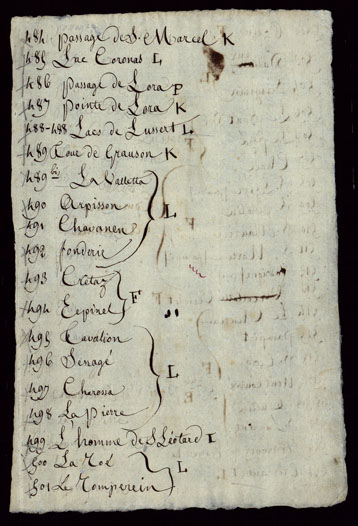 484 Passage de S. Marcel K
485 Luc Coronas L
486 Passage de Lora P
487 Pointe de Lora K
488-488 Lacs de Lussert L
489 Tour de Grauson K
489 bis La Valletta
490 Arpisson
491 Chavanen L
492 fonderie
493 Crétaz F
494 Eepinel
495 Cavalion
496 Senagé L
497 Charossa
498 La Pierre
499 L'homme de S. Léotard L
500 La NoL L
501 Le Tomperein